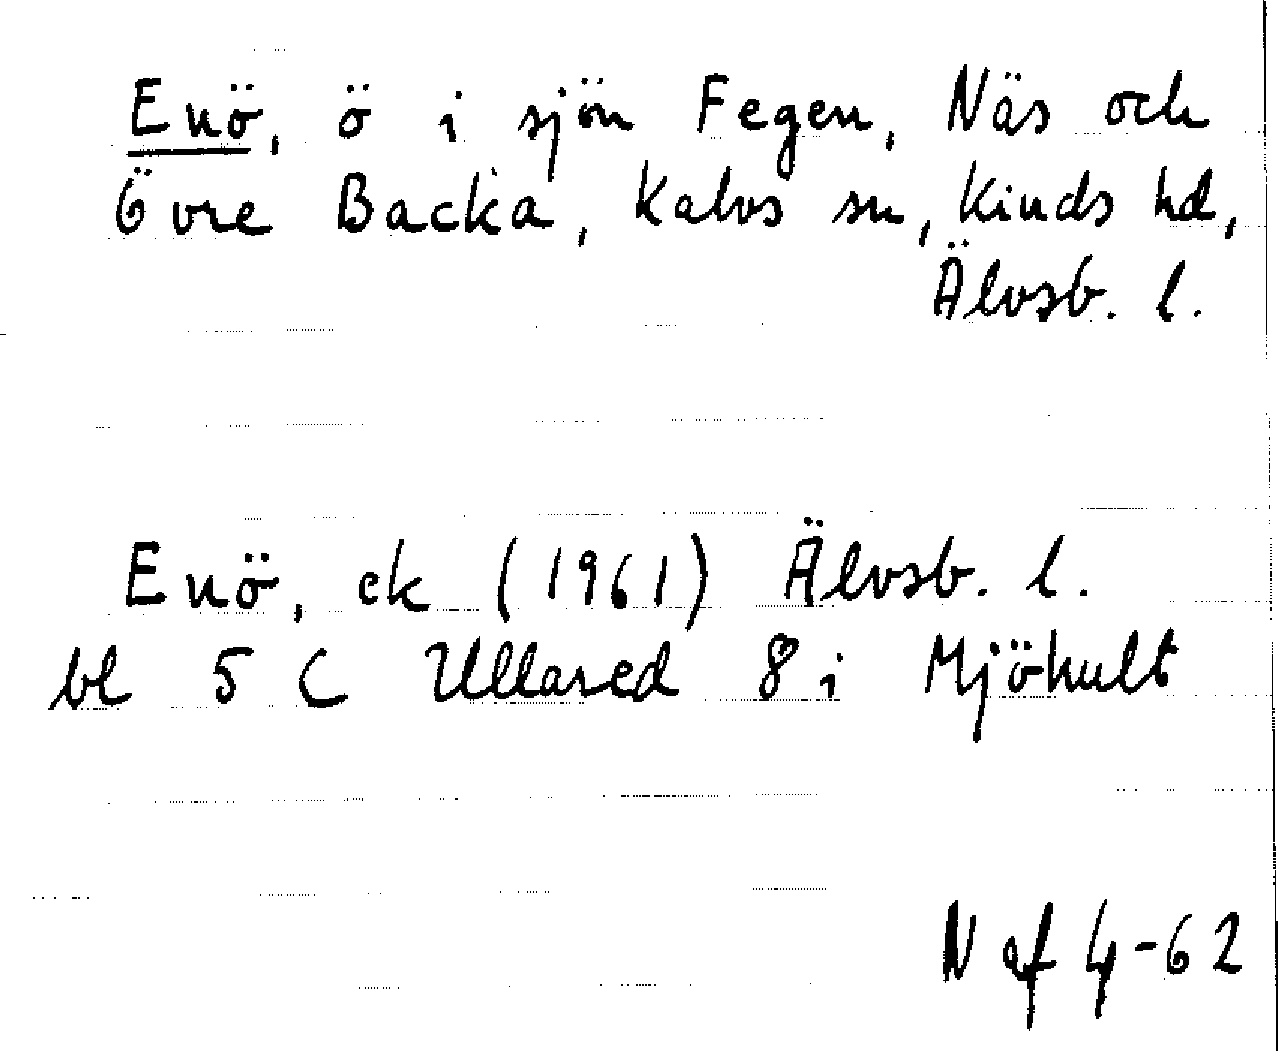 Enö, ö i sjön Fegen, Näs och
Övre Backa, Kalvs sn, Kinds hd,
Älvsb. l.
Enö, ek (1961) Älvsb. l.
bl 5 C Ullared 8 i Mjöhult
N af 4-62